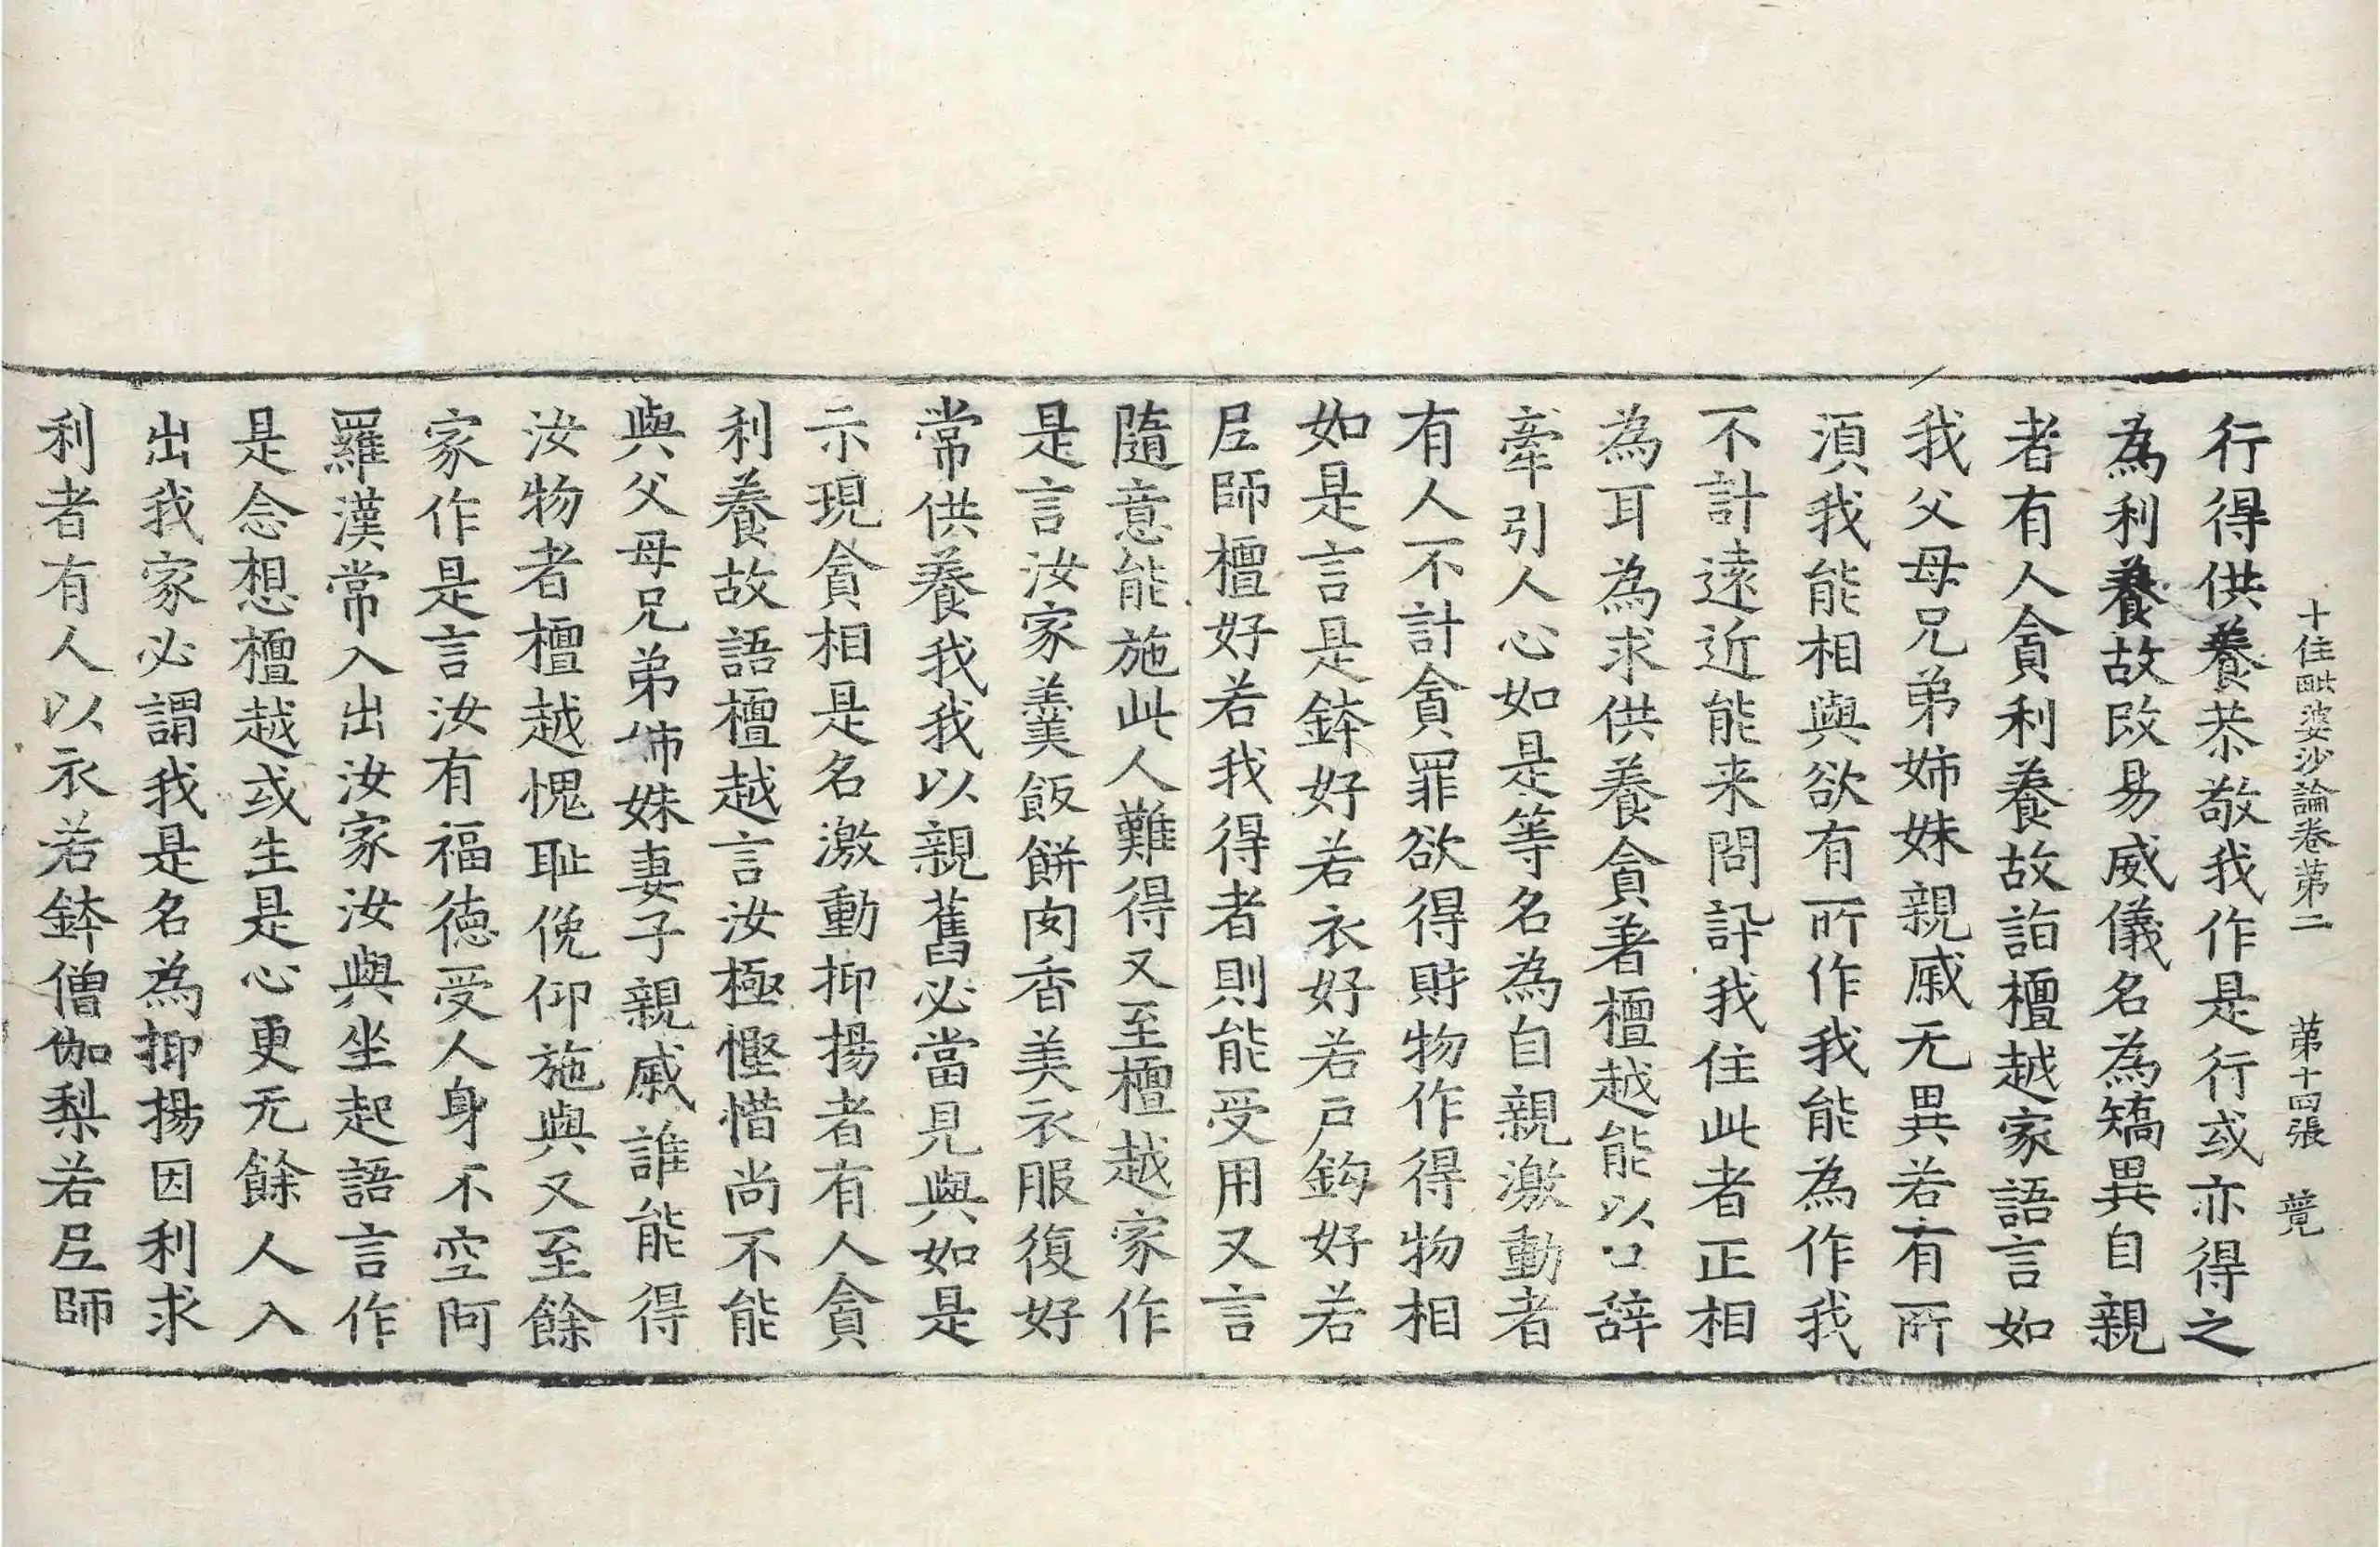 十住毗婆沙論卷苐二　苐十四張　䒖
行得供養恭敬我作是行或亦得之
為利養故改易威儀名為矯異自親
者有人貪利養故詣檀越家語言如
我父母兄弟姉妹親戚无異若有所
湏我能相與欲有所作我能為作我
不計遠近能来問訊我住此者正相
為耳為求供養貪著檀越能以口辞
牽引人心如是等名為自親激動者
有人不計貪罪欲得財物作得物相
如是言是鉢好若衣好若戶鈎好若
尼師檀好若我得者則能受用又言
隨意能施此人難得又至檀越家作
是言汝家羹飯餅肉香美衣服復好
常供養我我以親舊必當見與如是
示現貪相是名激動抑揚者有人貪
利養故語檀越言汝極慳惜尚不能
與父母兄弟姉妹妻子親戚誰能得
汝物者檀越愧耻俛仰施與又至餘
家作是言汝有福德受人身不空阿
羅漢常入出汝家汝與坐起語言作
是念想檀越或生是心更无餘人入
出我家必謂我是名為抑揚因利求
利者有人以衣若鉢僧伽梨若尼師